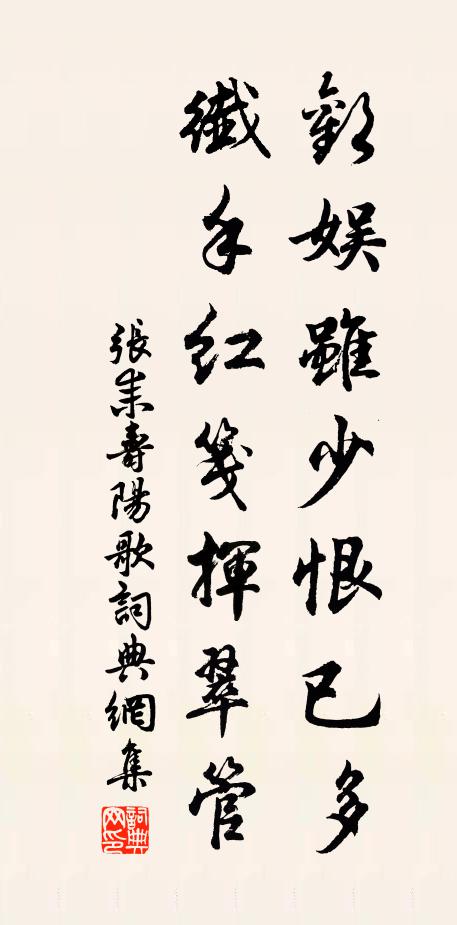 歡娛雖少恨已多
纖手紅箋揮翠管
張耒壽陽歌詞典網集
詞典網印